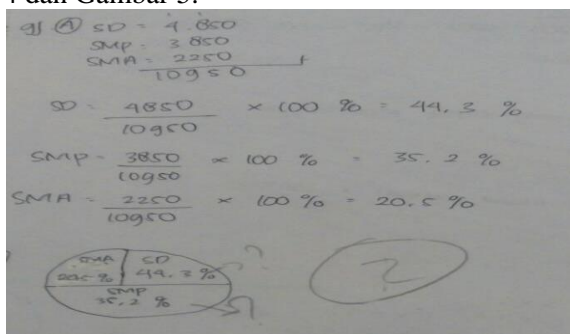 4 dan Gambar 5.
9) A SD = 4.850
SMP = 3850
SMA = 2250
+
10950
SD = 4850 / 10950 × 100 % = 44.3 %
SMP = 3850 / 10950 × 100 % = 35.2 %
SMA = 2250 / 10950 × 100 % = 20.5 %
SMA 20.5 %
SD 44.3 % ?
SMP 35.2 % ?
2